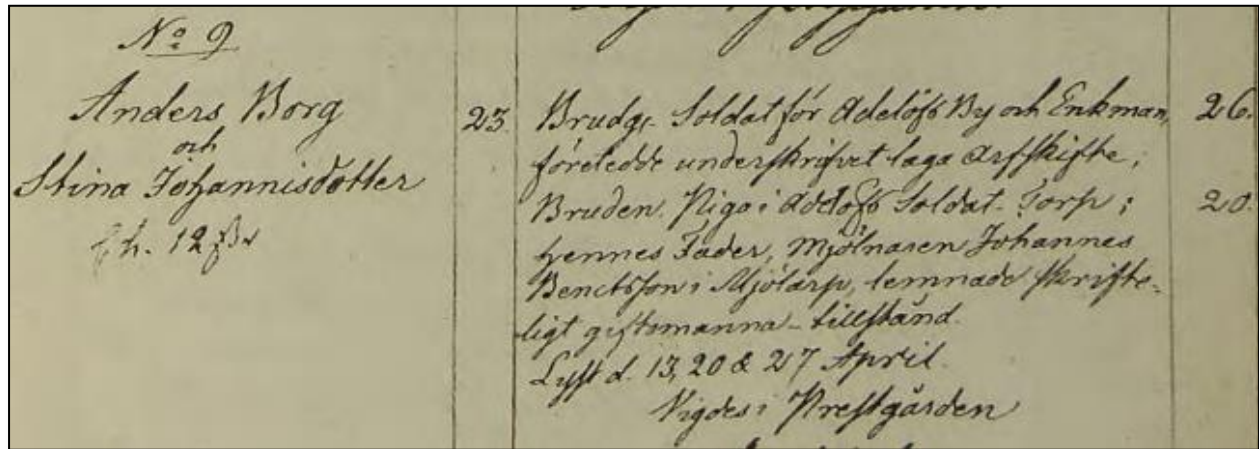 No 9
Anders Borg
och
Stina Johannisdotter
12
23.
Brudg. Soldat för Adelöfs By och Enkman,
företedde underskrifvet laga Arfskifte;
Bruden. Piga i Adelöfs Soldat-Torp;
hennes Fader, Mjölnaren Johannes
Benctsson i Mjölarp, lemnade skrifte-
ligt giftomanna-tillstånd.
Lyst d. 13, 20 & 27 April.
Vigdes i Prestgården
26.
20.